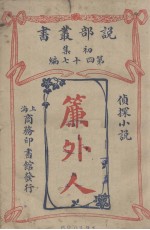 說部叢書
初集
第四十七編
偵探小說
簾外人
上海
商務印書館發行